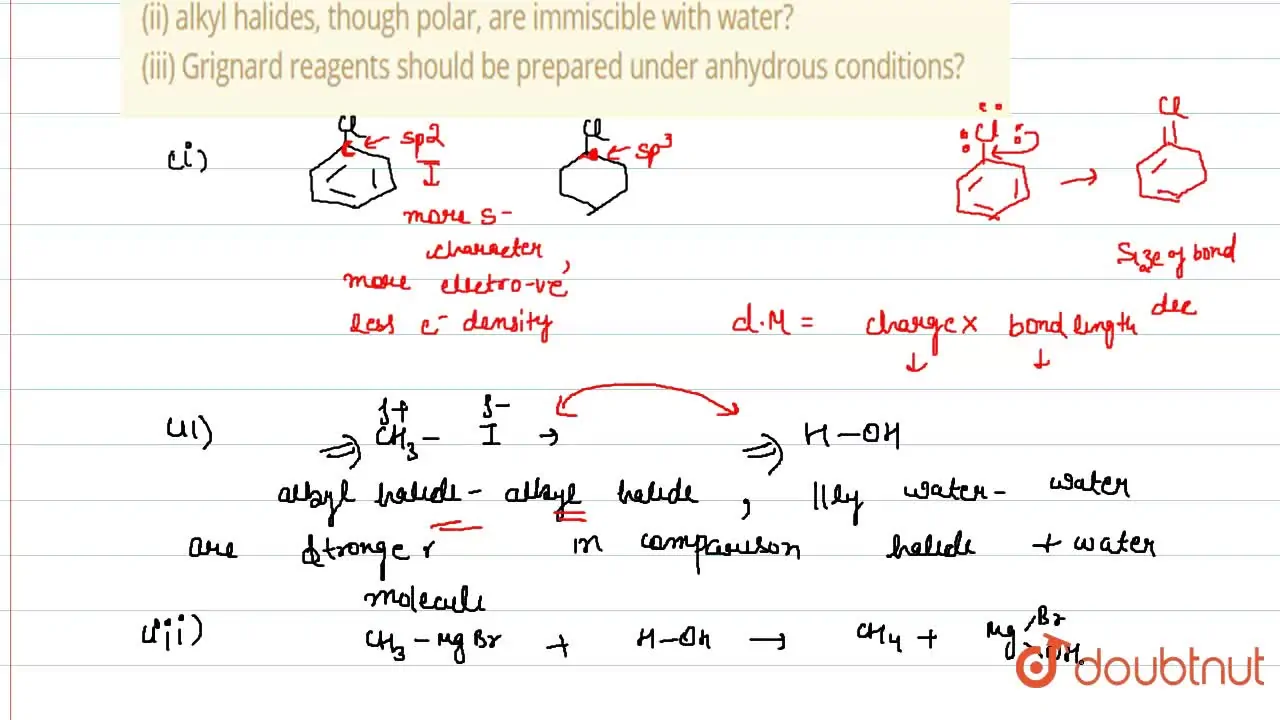 (ii) alkyl halides, though polar, are immiscible with water?
(iii) Grignard reagents should be prepared under anhydrous conditions?
(i)
Cl
sp2
I
more s-
character,
more electro-ve
less e- density
Cl
sp3
Cl
Cl
Size of bond
dec
d.M = charge × bond length
↓ ↓
(ii) ⇒ δ+ δ-
CH3 - I → ⇒ H-OH
alkyl halide - alkyl halide, llly water - water
are stronger in comparison halide + water
molecule
(iii) CH3-MgBr + H-OH → CH4 + Mg Br OH
doubtnut